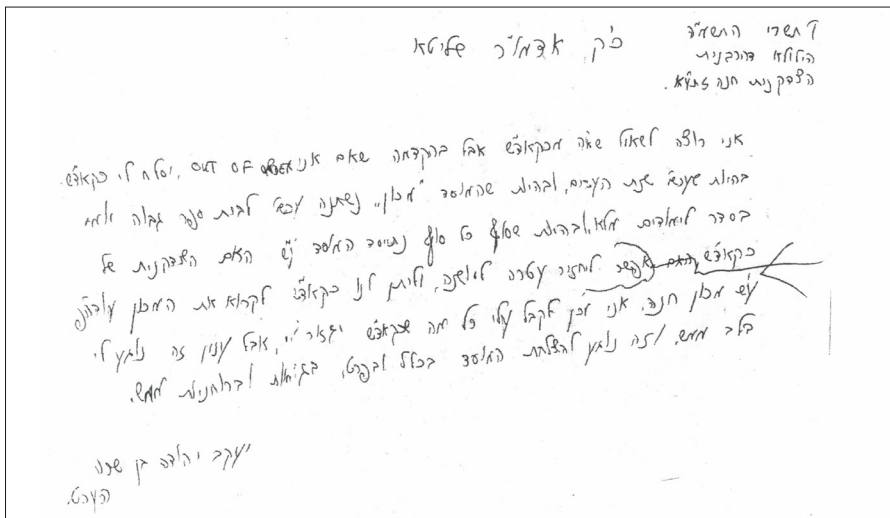 ו' תשרי ה'תשמ"ד
הילולא דהרבנית
הצדקנית חנה זי"ע.
כ"ק אדמו"ר שליט"א
אני רוצה לשאול מכקאד"ש אבל בהקדמה שאם אני OUT OF, יסלח לי כקאד"ש
בהיות שעכשיו שנת, ובהיות שהמוסד "מכון" נשתנה עכשיו לבית ספר גבוה
בסדר לימודים מלא, ובהיות שסוף כל סוף נתיסד המוסד ע"ש האם הצדקנית של
כקאד"ש האם אפשר להחזיר עטרה ליושנה, וליתן לנו כקאד"ש לקרוא את המכון עוה"פ
ע"ש מכון חנה. אני מוכן לקבל עלי כל מה שכקאד"ש יגזור, אבל ענין זה נוגע לי
בלב ממש, וזה נוגע להצלחת המוסד בכלל ובפרט, בגשמיות וברוחניות ממש.
יעקב יהודה בן שרה
העכט.